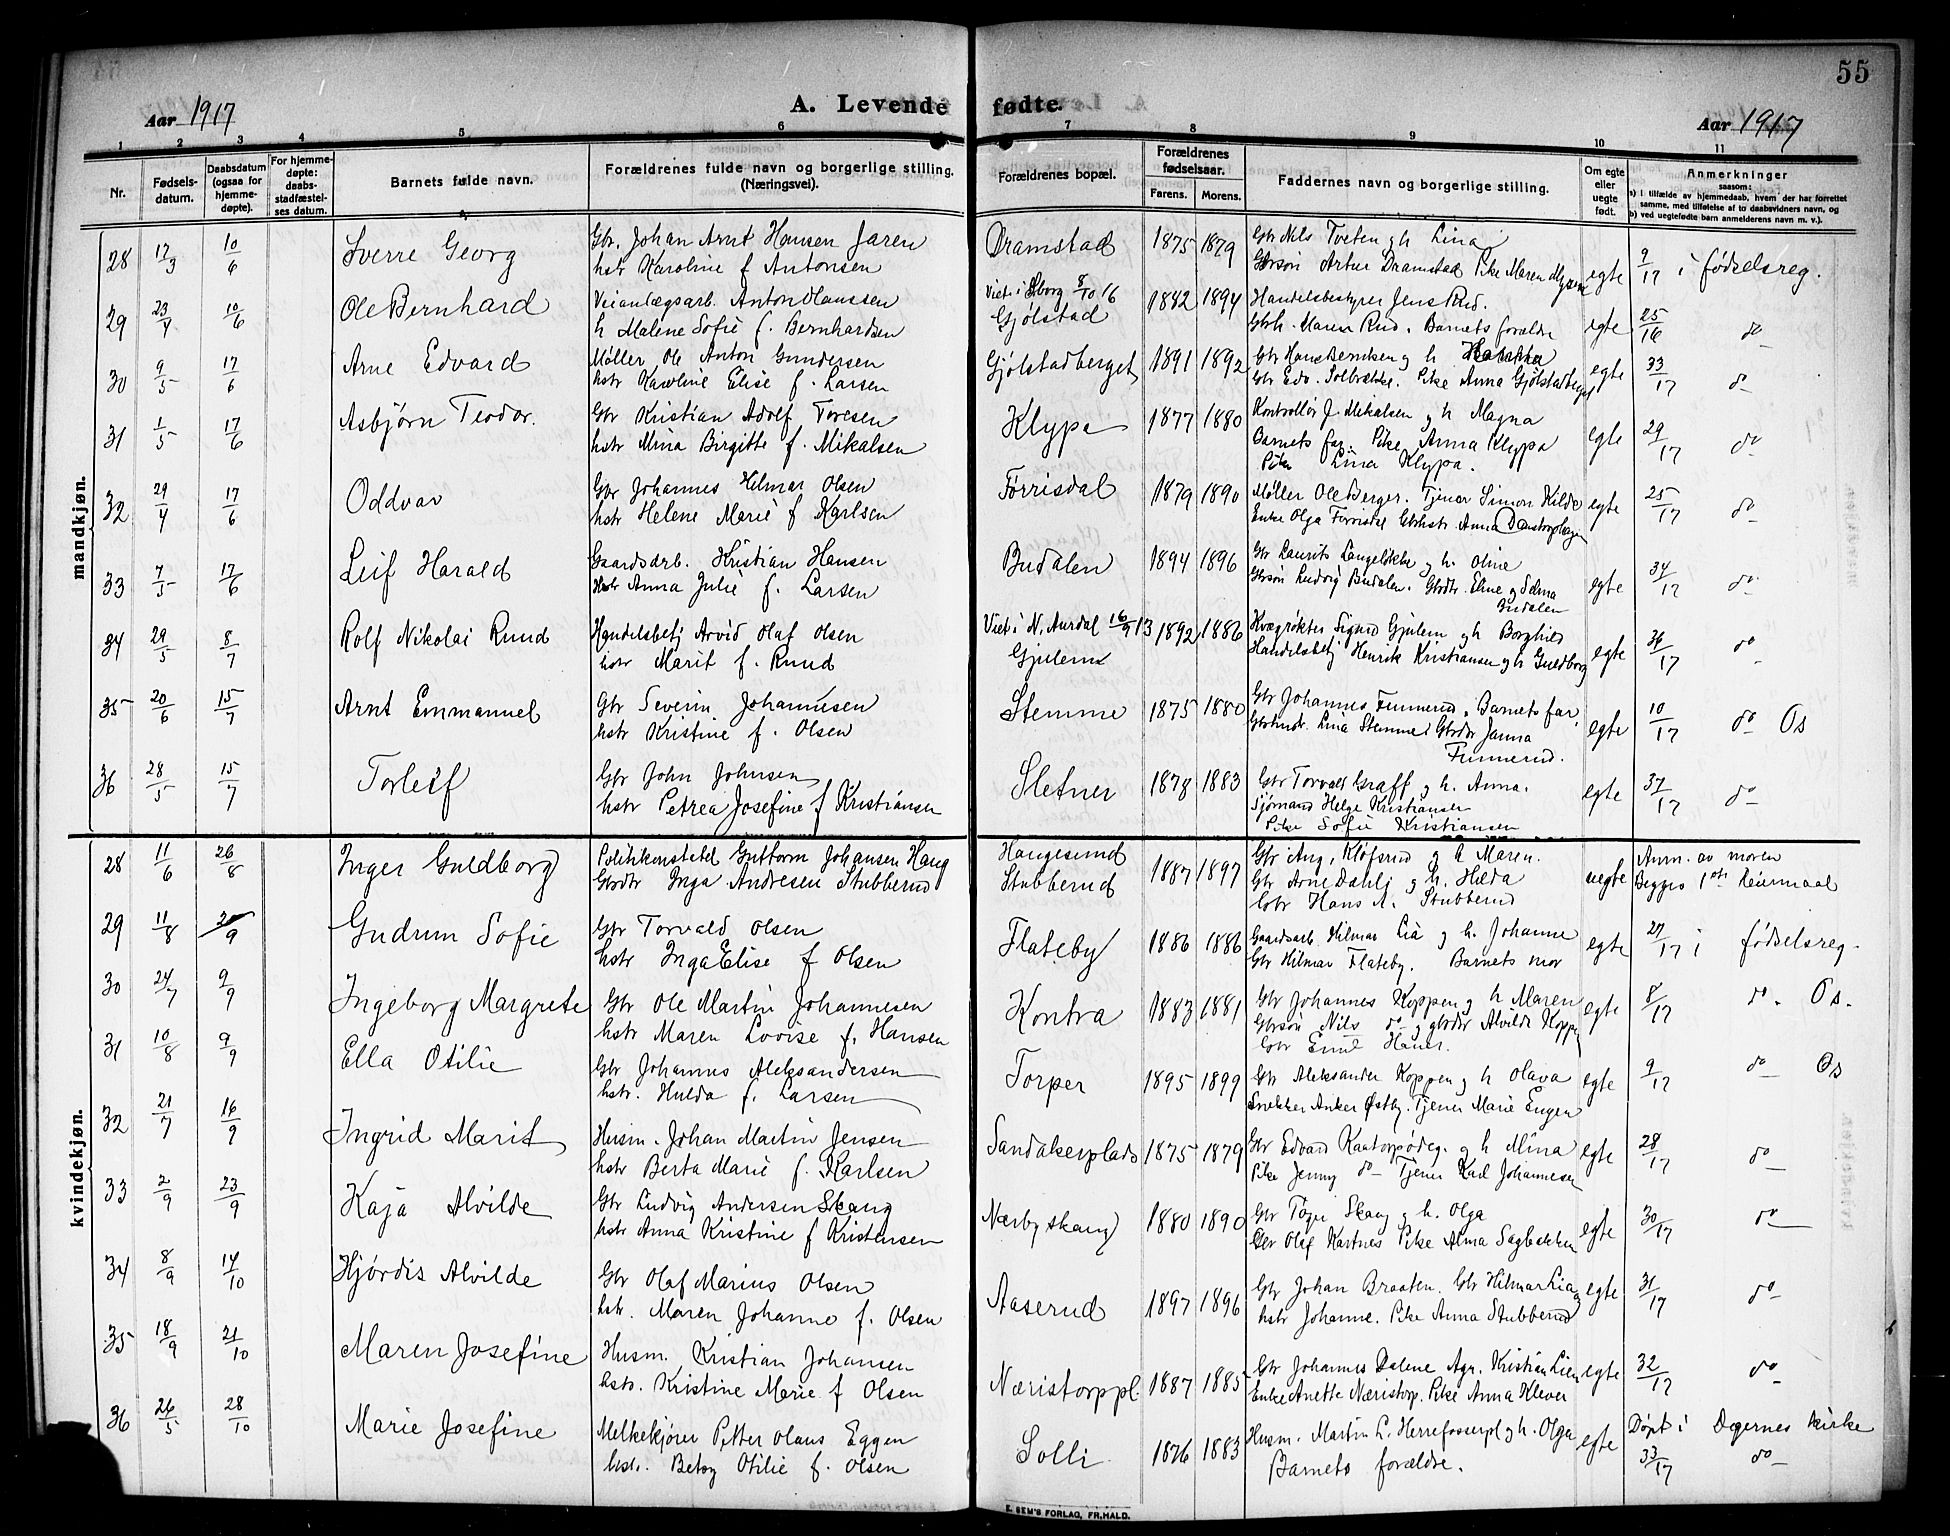 55
Aar 1917
A. Levende fødte.
Aar 1917
1 2 3 4 5 6 7 8 9 10 11
Nr.
Fødsels-datum.
Daabsdatum (ogsaa for hjemme-døpte).
For hjemme-døpte: daabs-stadfæstel-ses datum.
Barnets fulde navn.
Forældrenes fulde navn og borgerlige stilling. (Næringsvei).
Forældrenes bopæl.
Forældrenes fødselsaar.
Farens. Morens.
Faddernes navn og borgerlige stilling.
Om egte eller uegte født.
Anmerkninger
saasom:
a) i tilfælde av hjemmedaab, hvem der har forrettet
samme, med tilføielse af to daabsvidners navn, og
b) ved uegtefødte barn anmelderens navn m. v.).
mandkjøn.
28 12/3 10/6 Sverre Georg Gbr. Johan Arnt Hansen Jaren Dramstad 1875 1879 Gbr Nils Tveten og h Lina egte 9/17 i fødselsreg.
hstr Karoline f Antonsen Gbrsøn Artur Dramstad Pike Maren Myrene
29 23/4 10/6 Ole Bernhard Veianlægsarb. Anton Hanssen Viet i Sborg 8/10 16 1882 1894 Handelsbestyrer Jens Rud. egte 25/16 do
h Malene Sofie f. Bernhardsen Gjølstad Gbrh. Maren Rud. Barnets forældre
30 9/5 17/6 Arne Edvard Møller Ole Anton Gundersen Gjølstadberget 1891 1892 Gbr Hans Berntsen og h egte 33/17 do
hstr Karoline Elise f. Larsen Gbr Edv. Solbrække. Pike Anna Gjølstadberget
31 1/5 17/6 Asbjørn Teodor. Gbr Kristian Adolf Toresen Klype 1877 1880 Kontrollør J. Mikalsen og h Magna egte 29/17 do
hstr Mina Birgitte f. Mikalsen Barnets far. Pike Anna Klypa
Pike Lina Klypa.
32 29/4 17/6 Oddvar Gbr Johannes Hilmar Olsen Førrisdal 1879 1890 Møller Ole Berger. Tjener Simon Kilde egte 25/17 do
hstr Helene Marie f Karlsen Enke Olga Førrisdal Gbrhstr. Anna
33 7/5 17/6 Leif Harald Gaardsarb. Kristian Hansen Budalen 1894 1896 Gbr Laurits Langeløkke og h. Oline egte 34/17 do
Hstr Anna Julie f. Larsen Gbrsøn Ludvig Budalen. Gbrdtr. Eline og Selma
Budalen
34 29/5 8/7 Rolf Nikolai Ruud Handelsbetj Arvid Olaf Olsen Viet i N. Aurdal 16/9 13 1892 1886 Kvægrøkter Sigurd Gjulem og h Borghild egte 36/17 do
hstr Marit f. Ruud Gjulem Handelsbetj Henrik Kristiansen og h Guldborg
35 20/6 15/7 Arnt Emmanuel Gbr Severin Johannesen Stemme 1875 1880 Gbr Johannes Funnerud. Barnets far. egte 10/17 do Os
hstr Kristine f. Olsen Lina Stemme Gbrdtr Janna
Funnerud.
36 28/5 15/7 Torleif Gbr John Johnsen Sletner 1878 1883 Gbr Torvald Graff og h. Anna. egte 37/17 do
hstr Petrea Josefine f Kristiansen Sjømand Helge Kristiansen
Pike Sofie Kristiansen
kvindekjøn.
28 11/6 26/8 Inger Guldborg Politikonstabel Guttorm Johansen Haug Haugesund 1887 1897 Gbr Aug. Kløfsrud og h Maren. uegte Anm. av moren
Gbrdtr Inga Andresen Stubberud Stubberud Gbr Arne Dahli og h. Hilda Begges 1ste leiermaal
Gbr Hans A. Stubberud
29 11/8 2/9 Gudrun Sofie Gbr Torvald Olsen Flateby 1886 1886 Gaardsarb. Hilmar Lia og h. Johanne egte 27/17 i fødselsreg.
hstr Inga Elise f Olsen Gbr Hilmar Flateby. Barnets mor
30 24/7 9/9 Ingeborg Margrete Gbr Ole Martin Johannesen Kontra 1883 1881 Gbr Johannes Koppen og h Maren egte 8/17 do. Os.
hstr Maren Lovise f. Hansen Gbrsøn Nils do og gbrdtr Alvilde Koppen
Gbr Emil Haner.
31 10/8 9/9 Ella Otilie Gbr Johannes Aleksandersen Torper 1895 1899 Gbr Aleksander Koppen og h Olava egte 9/17 do Os
hstr. Hulda f. Larsen Snekker Anker Østby. Tjener Marie Engen
32 21/7 16/9 Ingrid Marit Husm. Johan Martin Jensen Sandakerplads 1875 1879 Gbr Edvard Kaatorpødeg. og h Mina egte 28/17 do
hstr Berta Marie f. Karlsen Pike Jenny do Tjener Karl Johannesen
33 2/9 23/9 Kaja Alvilde Gbr Ludvig Andersen Skaug Nærby skaug 1880 1890 Gbr Tøger Skaug og h. Olga egte 30/17 do
hstr Anna Kristine f Kristensen Gbr Olaf Kartnes Pike Alma Sagbakken
34 8/9 14/10 Hjørdis Alvilde Gbr Olaf Marius Olsen Aaserud 1897 1896 Gbr Johan Braaten. Gbr Hilmar Lia og egte 31/17 do
hstr. Maren Johanne f. Olsen hstr Johanne. Pike Anna Stubberud
35 18/9 21/10 Maren Josefine Husm. Kristian Johansen Næristorppl. 1887 1885 Gbr Johannes Dalene Agr. Kristian Lien egte 32/17 do
hstr. Kristine Marie f Olsen Enke Anette Næristorp. Pike Anna Klever
36 26/5 28/10 Marie Josefine Melkekjører Petter Olaus Eggen Solli 1876 1883 Husm. Martin L. Herrefosserpl og h. Olga egte Døpt i Degernes kirke
hstr. Betsy Otilie f. Olsen Barnets forældre. 33/17 do
E. SEM'S FORLAG, FR.HALD.